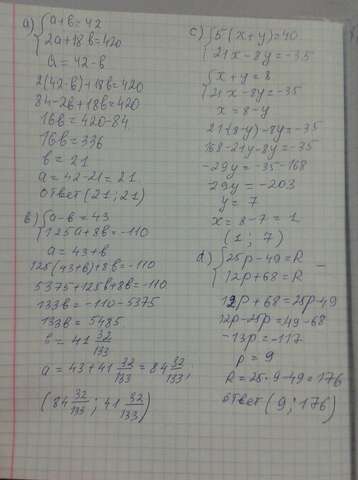 a) { a+b=42
2a+18b=420
a=42-b
2(42-b)+18b=420
84-2b+18b=420
16b=420-84
16b=336
b=21
a=42-21=21
Ответ (21;21)
в) { a-b=43
125a+8b=-110
a=43+b
125(43+b)+8b=-110
5375+125b+8b=-110
133b=-110-5375
133b=5485
b=41 32/133
a=43+41 32/133=84 32/133,
(84 32/133; 41 32/133)
c) { 5(x+y)=40
21x-8y=-35
{ x+y=8
21x-8y=-35
x=8-y
21(8-y)-8y=-35
168-21y-8y=-35
-29y=-35-168
-29y=-203
y=7
x=8-7=1
(1; 7)
d) { 25p-49=R
12p+68=R
12p+68=25p-49
12p-25p=-49-68
-13p=-117
p=9
R=25·9-49=176
Ответ (9; 176)